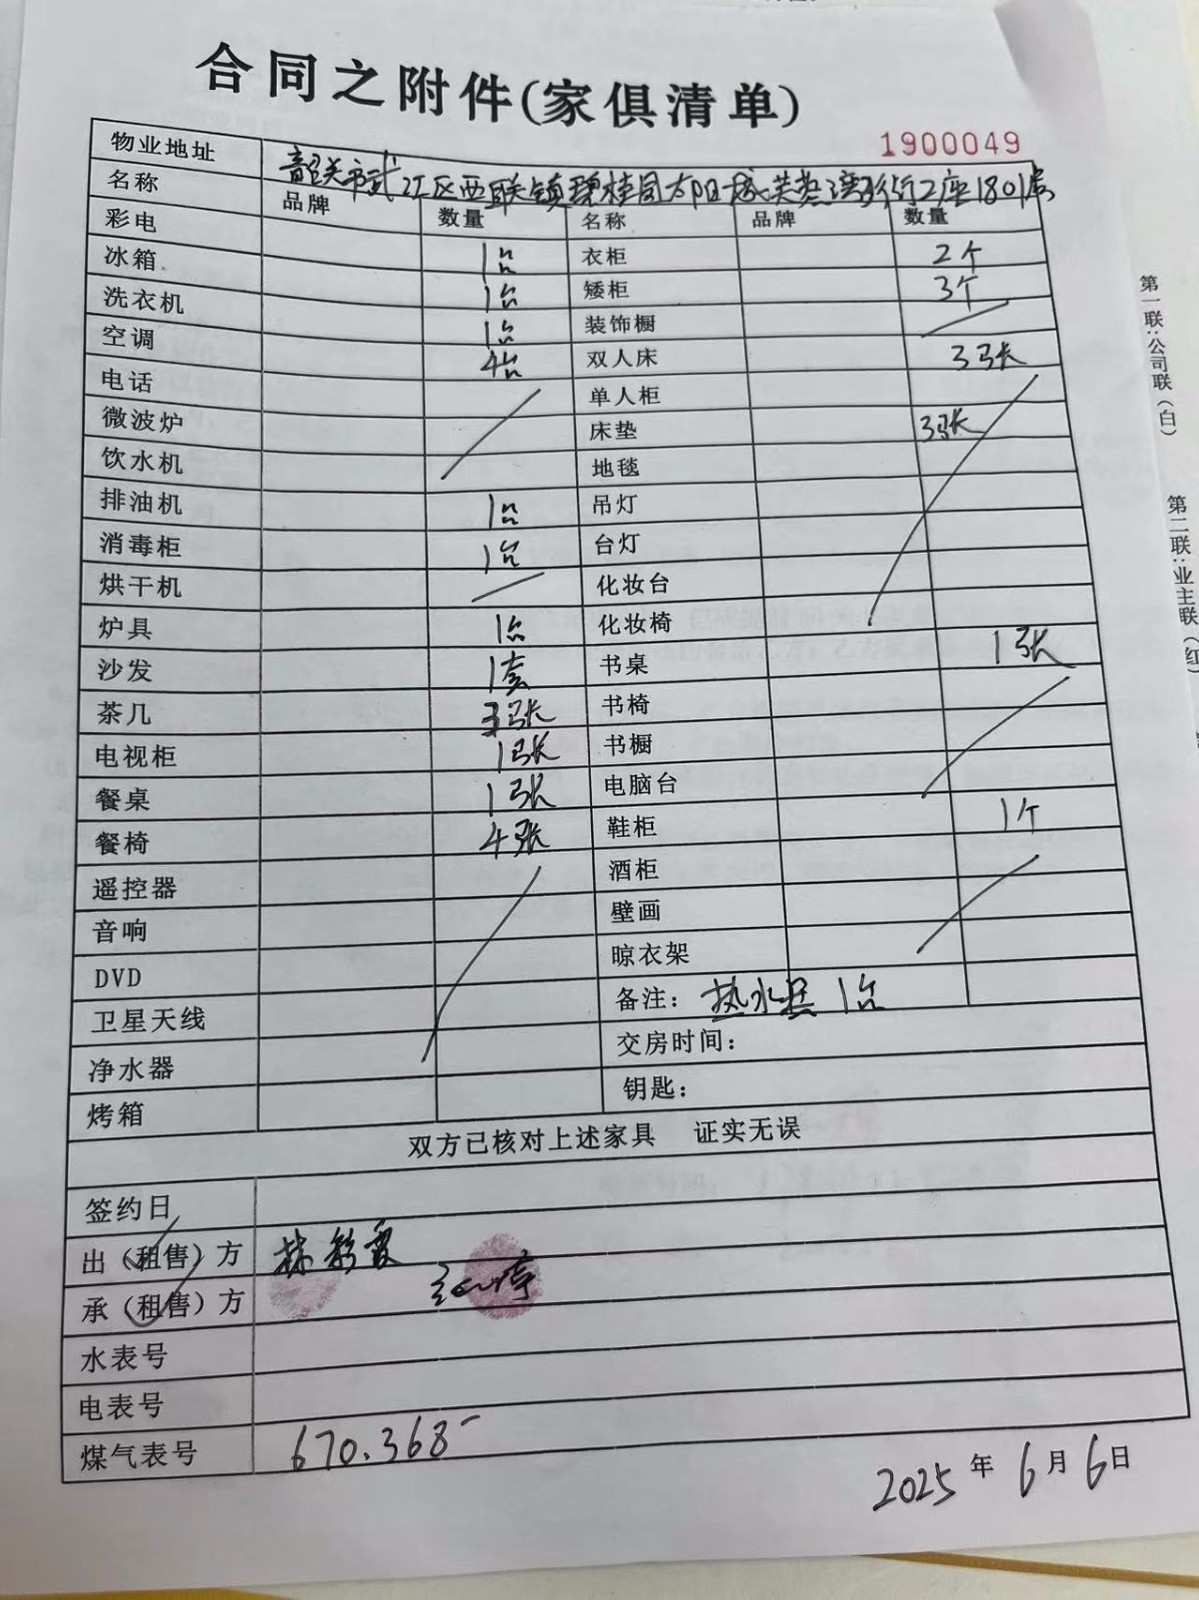 合同之附件(家俱清单)
1900049
物业地址 韶关市武江区西联镇碧桂园太阳城芙蓉湾 2座1801房
名称 品牌 数量 名称 品牌 数量
彩电 1台 衣柜 2个
冰箱 1台 矮柜 3个
洗衣机 1台 装饰橱
空调 4台 双人床 3张
电话 单人柜
微波炉 床垫 3张
饮水机 地毯
排油机 1台 吊灯
消毒柜 1台 台灯
烘干机 化妆台
炉具 1台 化妆椅
沙发 1套 书桌 1张
茶几 3张 书椅
电视柜 1张 书橱
餐桌 1张 电脑台
餐椅 4张 鞋柜 1个
遥控器 酒柜
音响 壁画
DVD 晾衣架
卫星天线 备注: 热水器 1台
净水器 交房时间:
烤箱 钥匙:
双方已核对上述家具 证实无误
签约日
出(租售)方 林彩霞
承(租售)方
水表号
电表号
煤气表号 670.368
2025年6月6日
第一联:公司联(白)
第二联:业主联(红)